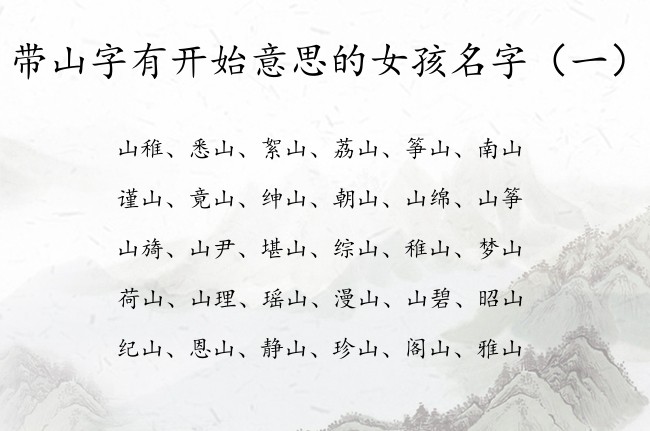 带山字有开始意思的女孩名字（一）
山稚、悉山、絮山、荔山、筝山、南山
谨山、竟山、绅山、朝山、山绵、山筝
山旖、山尹、堪山、综山、稚山、梦山
荷山、山理、瑶山、漫山、山碧、昭山
纪山、恩山、静山、珍山、阁山、雅山